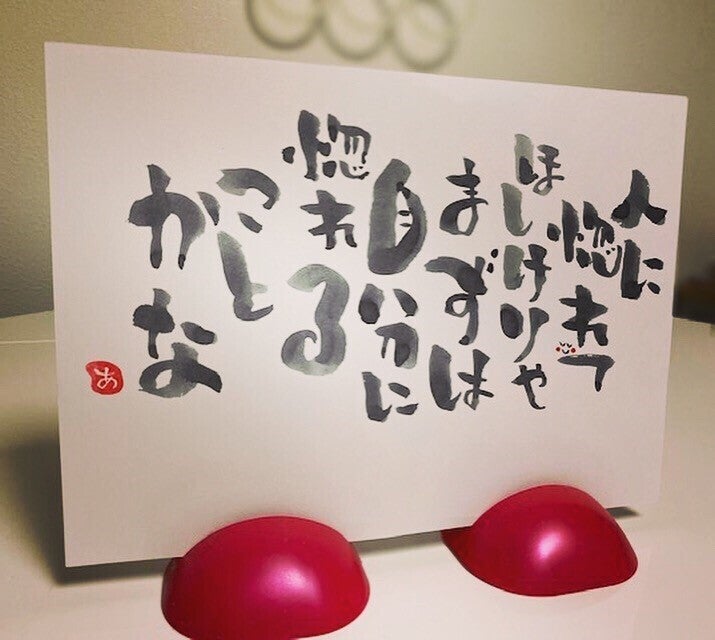 人に
惚れて
ほしけりゃ
まずは
自分に
惚れる
こと
かな
あ